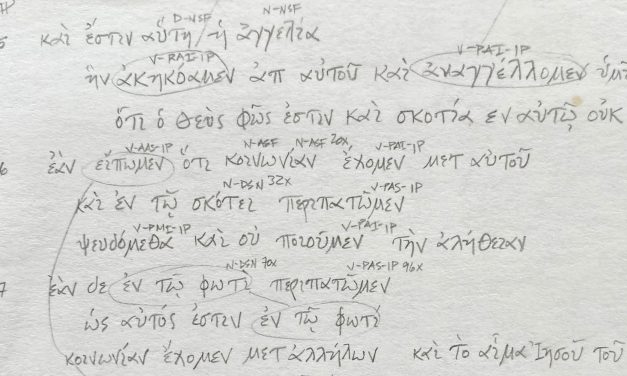 D-NSF N-NSF
5 καὶ ἔστιν αὕτη ἡ ἀγγελία
V-RAI-1P V-PAI-1P
ἣν ἀκηκόαμεν ἀπ αὐτοῦ καὶ ἀναγγέλλομεν
ὅτι ὁ θεὸς φῶς ἐστιν καὶ σκοτία ἐν αὐτῷ οὐκ
V-AAS-1P N-ASF N-ASF 20x V-PAI-1P
6 ἐὰν εἴπωμεν ὅτι κοινωνίαν ἔχομεν μετ αὐτοῦ
N-DSN 32x V-PAS-1P
καὶ ἐν τῷ σκότει περιπατῶμεν
V-PMI-1P V-PAI-1P
ψευδόμεθα καὶ οὐ ποιοῦμεν τὴν ἀλήθειαν
N-DSN 70x V-PAS-1P 96x
7 ἐὰν δε ἐν τῷ φωτὶ περιπατῶμεν
ὡς αὐτός ἐστιν ἐν τῷ φωτί
κοινωνίαν ἔχομεν μετ ἀλλήλων καὶ τὸ αἷμα Ἰησοῦ τοῦ